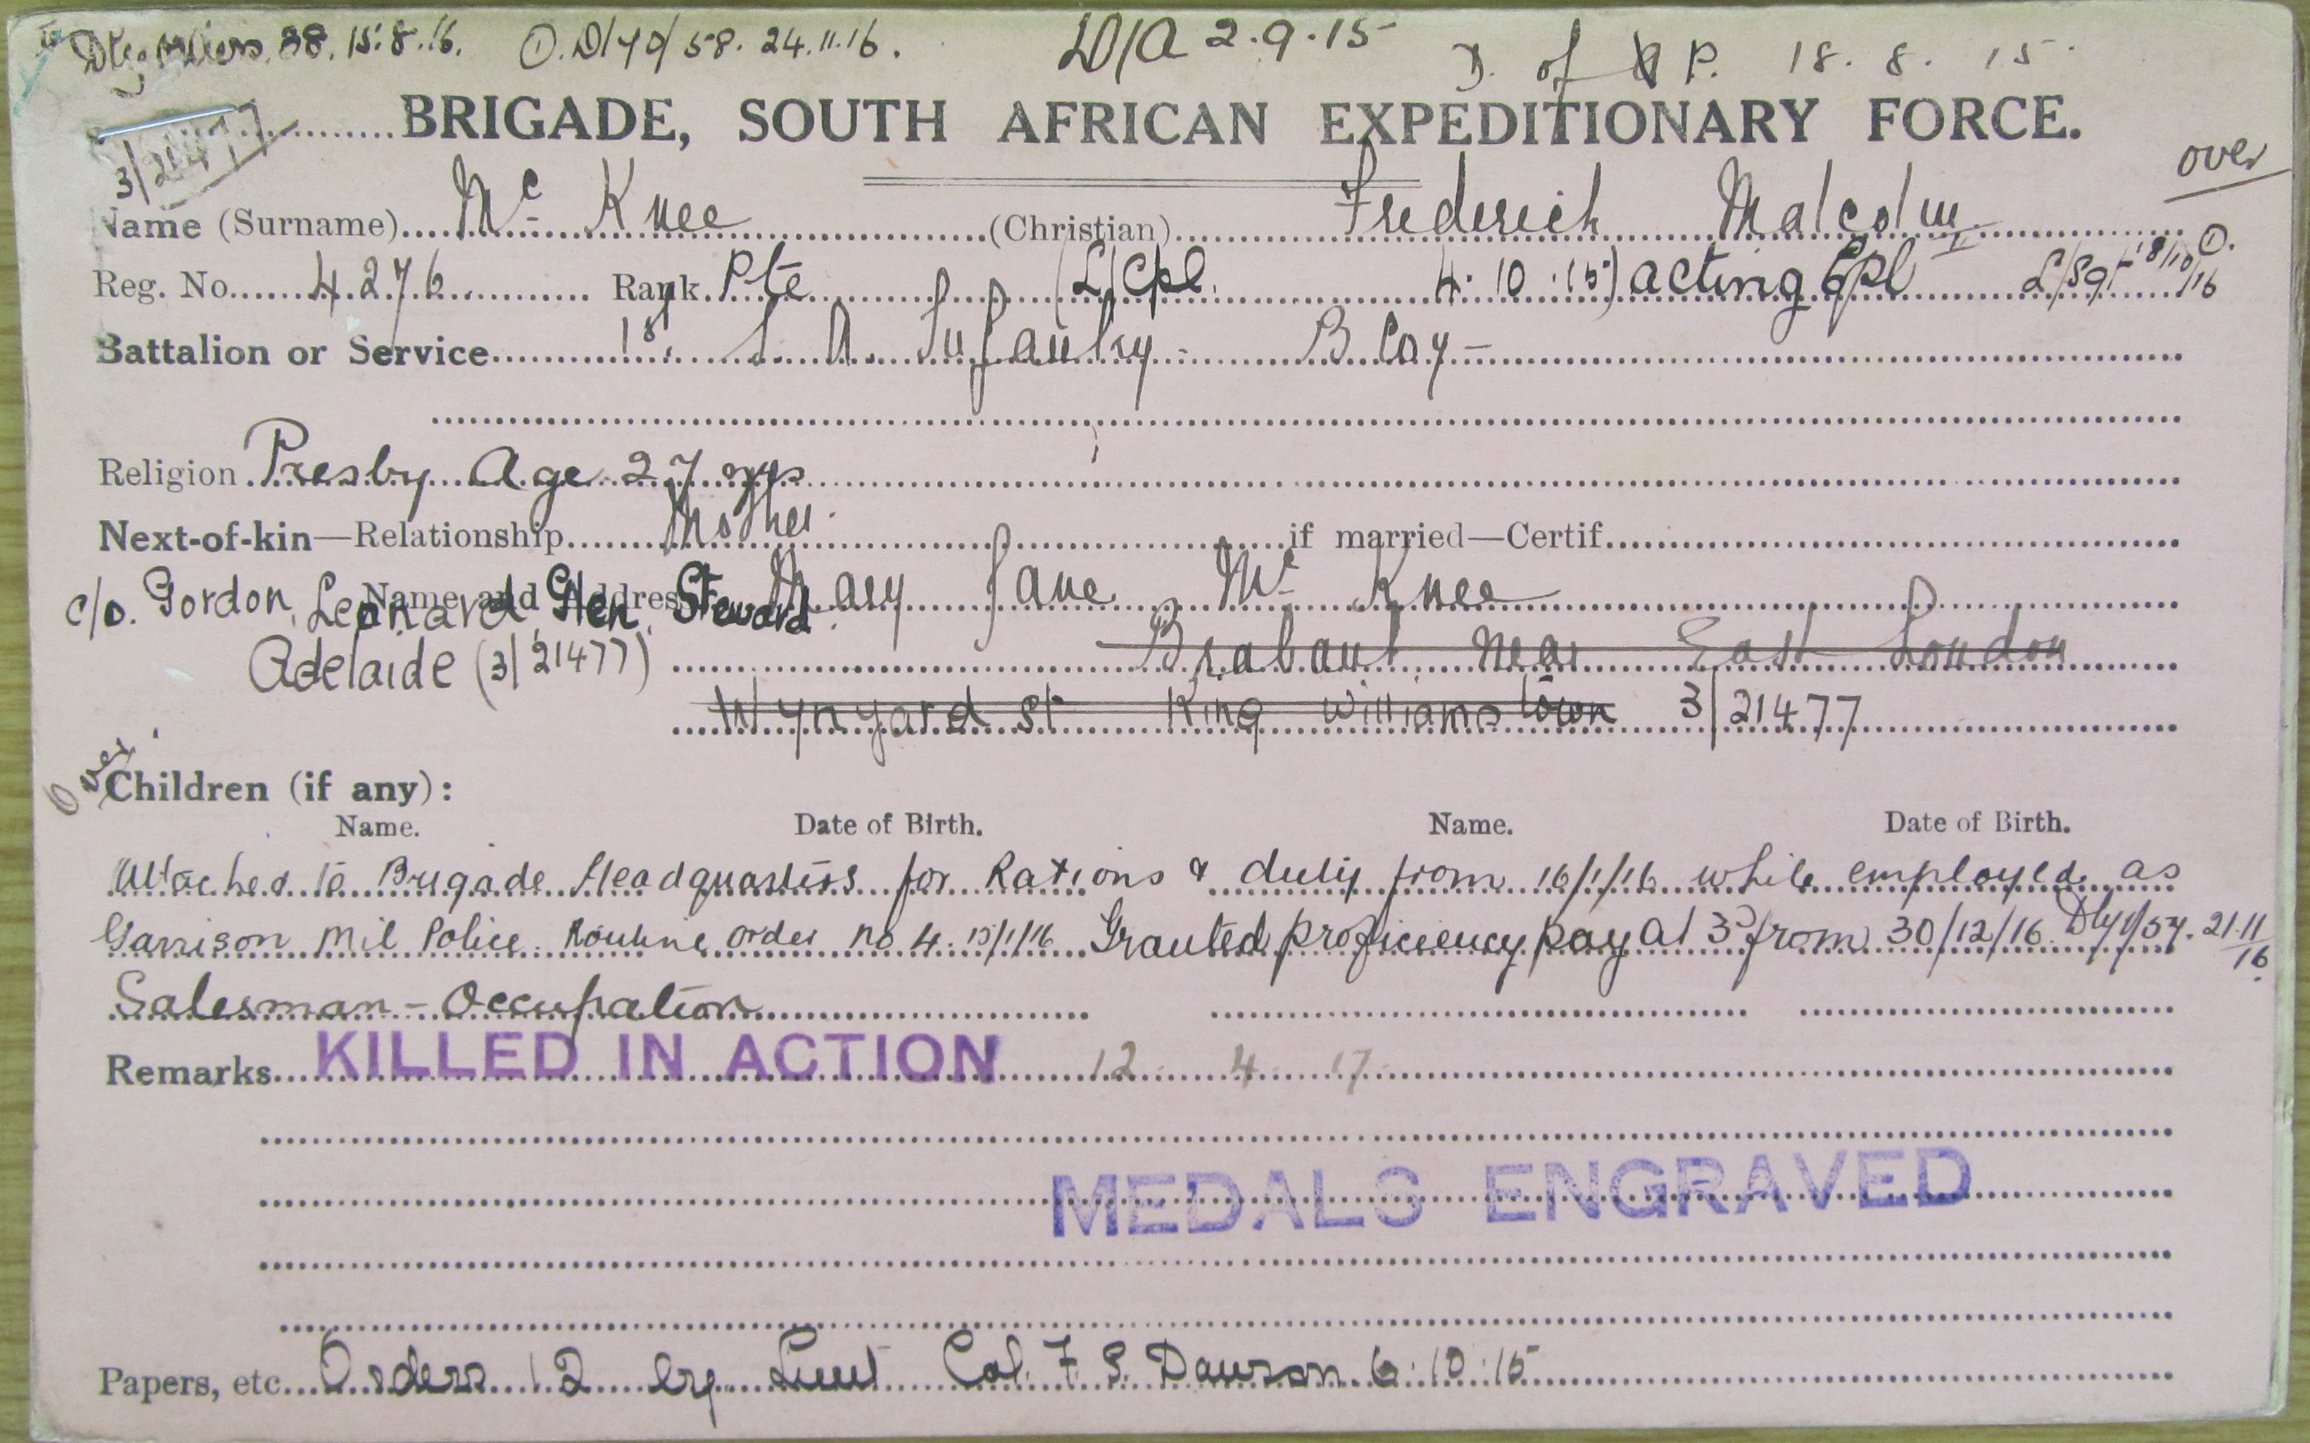 Dly Orders. 88. 15.8.16. O. Dly O/58. 24.11.16. D/A 2.9.15 D. of P. 18. 8. 15.
BRIGADE, SOUTH AFRICAN EXPEDITIONARY FORCE.
3/21477
over
Name (Surname) Mc Knee (Christian) Frederich Malcolm
Reg. No. 4276 Rank Pte (L/Cpl. 4.10.15) acting Cpl L/Sgt 18/10/16
Battalion or Service 1st. S. A. Infantry - B Coy -
Religion Presby Age 27 yrs
Next-of-kin—Relationship Mother. if married—Certif.
Name and Address Mary Jane Mc Knee
c/o. Gordon, Leonard Glen Steward.
Brabant near East London
Adelaide (3/21477)
Wynyard St King Williams town 3/21477
Over
Children (if any):
Name. Date of Birth. Name. Date of Birth.
Attached to Brigade Headquarters for Rations & duty from 16/1/16 while employed as
Garrison Mil Police. Routine order no 4. 15/1/16 Granted proficiency pay at 3d from 30/12/16. Dly O/57. 21.11/16.
Salesman - Occupation
Remarks KILLED IN ACTION 12 4 17
MEDALS ENGRAVED
Papers, etc. Orders 12 by Lieut Col. F. S. Dawson 6.10.15